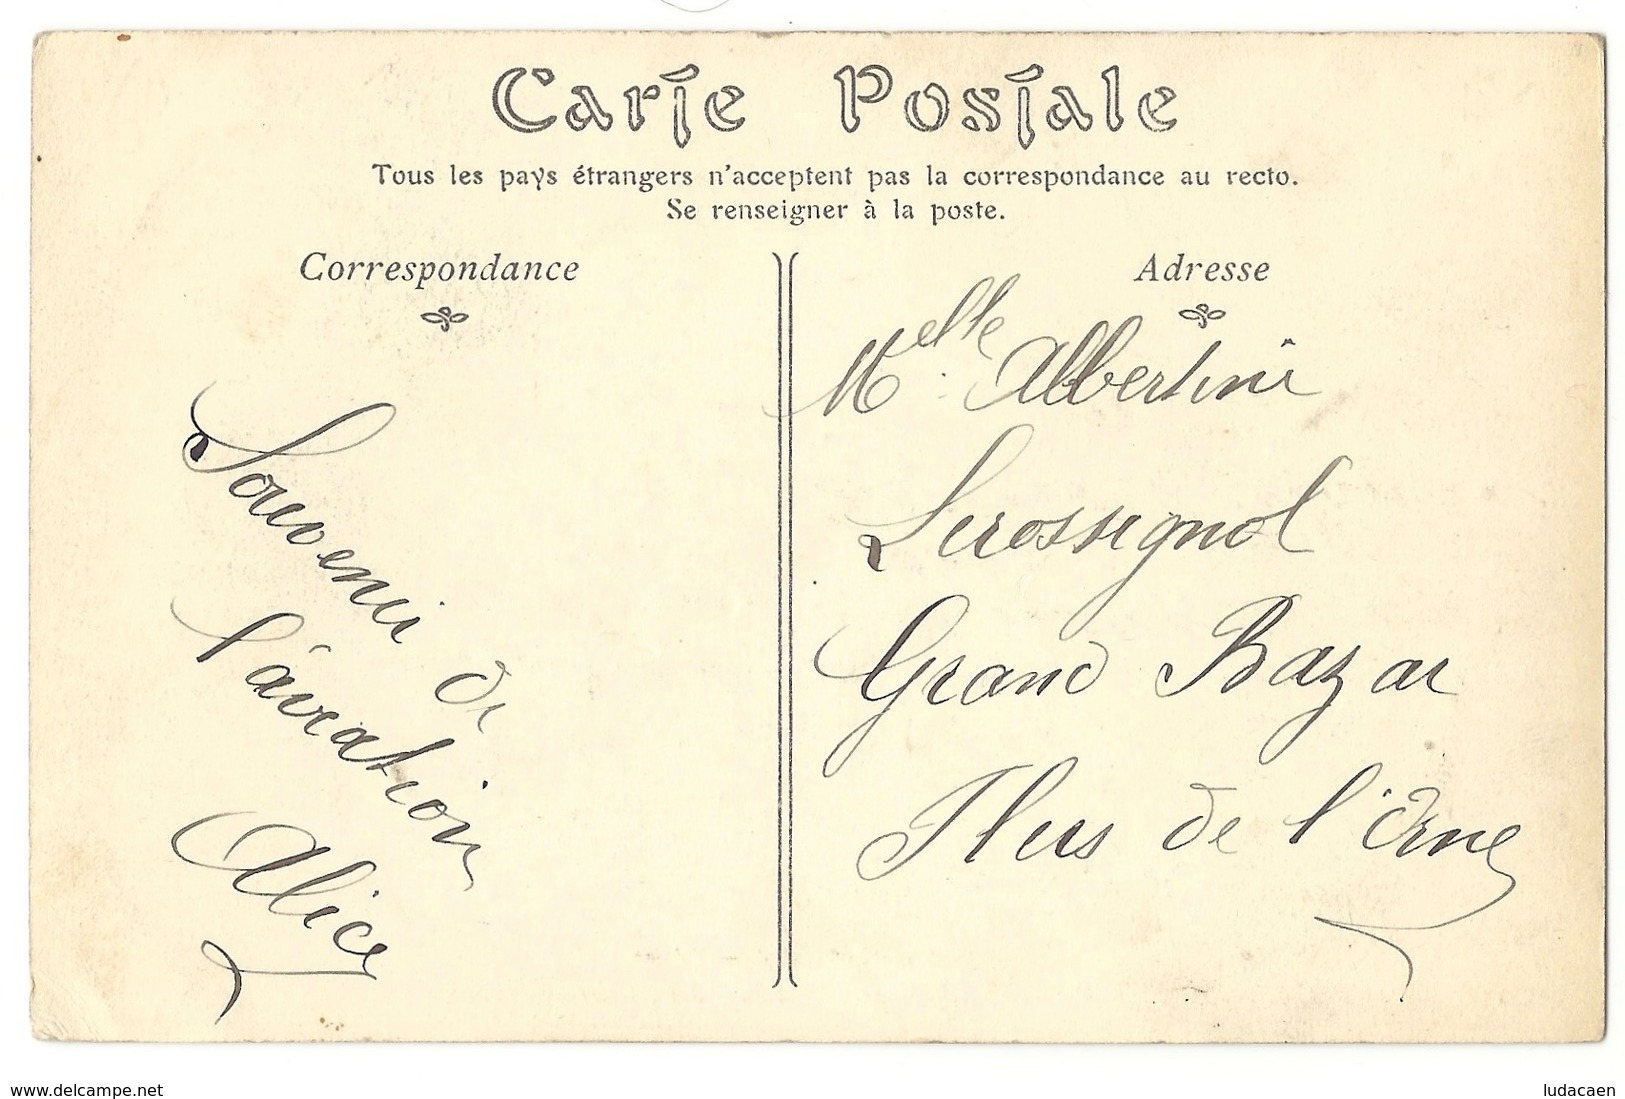 Carte Postale
Tous les pays étrangers n'acceptent pas la correspondance au recto.
Se renseigner à la poste.
Correspondance
Souvenir de
l'aviation
Alice
Adresse
Melle Albertine
Lerossignol
Grand Bazar
Flers de l'Orne
www.delcampe.net
ludacaen